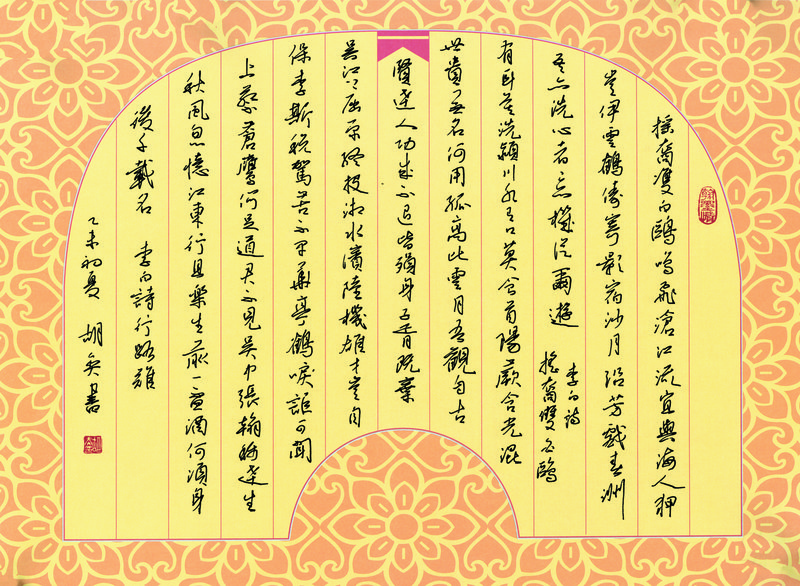 搖裔雙白鷗鳴飛滄江流宜與海人狎
豈伊雲鶴儔寄影宿沙月沿芳戲春洲
吾亦洗心者忘機從爾遊 李白詩
搖裔雙白鷗
有耳莫洗潁川水有口莫食首陽蕨含光混
世貴無名何用孤高比雲月吾觀自古
賢達人功成不退皆殞身子胥既棄
吳江上屈原終投湘水濱陸機雄才豈自
保李斯稅駕苦不早華亭鶴唳詎可聞
上蔡蒼鷹何足道君不見吳中張翰稱達生
秋風忽憶江東行且樂生前一盃酒何須身
後千載名 李白詩行路難
乙未初夏 胡 書